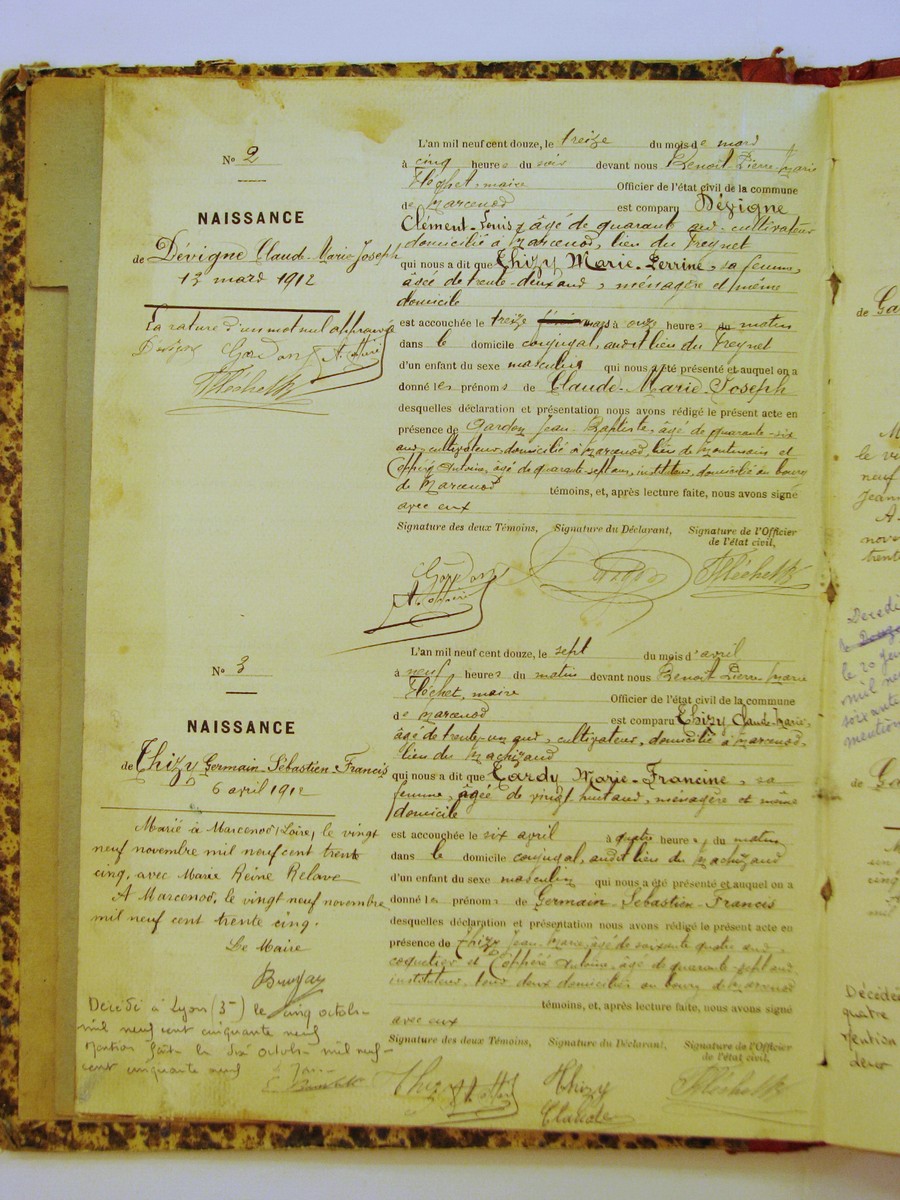 N° 2
NAISSANCE
de Dévigne Claude-Marie-Joseph
13 mars 1912
La rature d'un mot nul approuvée
Dévigne Gardon A. Coppéré
Fléchet B.
L'an mil neuf cent douze, le treize du mois de mars
à cinq heures du soir devant nous Benoit-Pierre-Marie
Fléchet, maire Officier de l'état civil de la commune
de Marcenod est comparu Dévigne
Clément-Louis, âgé de quarante ans, cultivateur
domicilié à Marcenod, lieu du Freynet
qui nous a dit que Thizy Marie-Perrine, sa femme,
âgée de trente-deux ans, ménagère et même
domicile
est accouchée le treize mars à onze heures du matin
dans le domicile conjugal, audit lieu du Freynet
d'un enfant du sexe masculin qui nous a été présenté et auquel on a
donné les prénoms de Claude-Marie-Joseph
desquelles déclaration et présentation nous avons rédigé le présent acte en
présence de Gardon Jean-Baptiste, âgé de quarante-six
ans, cultivateur, domicilié à Marcenod, lieu de et
Coppéré Antoine, âgé de quarante-sept ans, instituteur, domicilié au bourg
de Marcenod témoins, et, après lecture faite, nous avons signé
avec eux
Signature des deux Témoins, Signature du Déclarant, Signature de l'Officier
de l'état civil,
Gardon
A. Coppéré
N° 3
NAISSANCE
de Thizy Germain-Sébastien-Francis
6 avril 1912
Marié à Marcenod (Loire) le vingt
neuf novembre mil neuf cent trente
cinq, avec Marie Reine Relave
A Marcenod, le vingt neuf novembre
mil neuf cent trente cinq.
Le Maire
Décédé à Lyon (3e) le cinq octobre
mil neuf cent cinquante neuf
Mention faite le dix octobre mil neuf
cent cinquante neuf
L'an mil neuf cent douze, le sept du mois d'avril
à neuf heures du matin devant nous Benoit Pierre Marie
Fléchet, maire Officier de l'état civil de la commune
de Marcenod est comparu Thizy Claude-Marie,
âgé de trente-un ans, cultivateur, domicilié à Marcenod,
lieu du Machizaud
qui nous a dit que Tardy Marie-Francine, sa
femme, âgée de vingt huit ans, ménagère et même
domicile
est accouchée le six avril à quatre heures du matin
dans le domicile conjugal, audit lieu du Machizaud
d'un enfant du sexe masculin qui nous a été présenté et auquel on a
donné les prénoms de Germain-Sébastien-Francis
desquelles déclaration et présentation nous avons rédigé le présent acte en
présence de Thizy Jean-Marie, âgé de soixante quatre ans,
coquetier et Coppéré Antoine, âgé de quarante-sept ans,
instituteur, tous deux domiciliés au bourg de Marcenod
témoins, et, après lecture faite, nous avons signé
avec eux
Signature des deux Témoins, Signature du Déclarant, Signature de l'Officier
de l'état civil,
Thizy Thizy
Claude